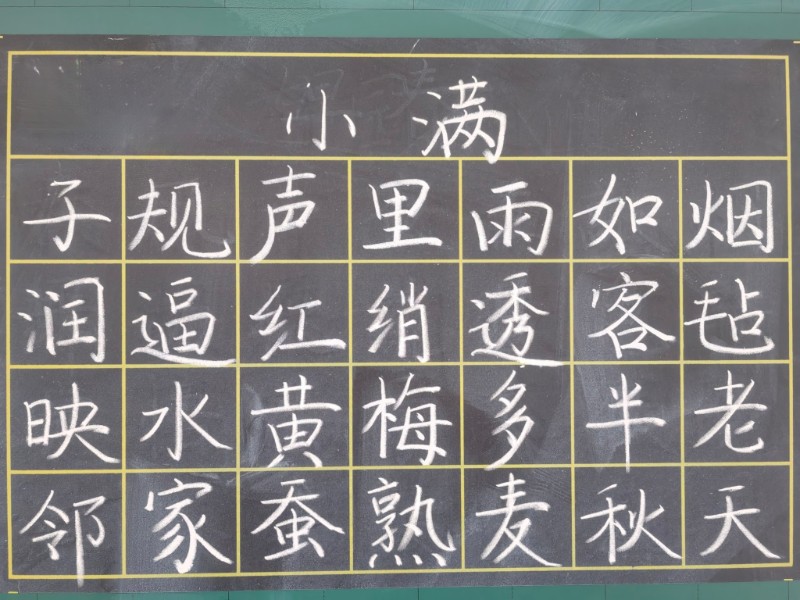 小满
子规声里雨如烟
润逼红绡透客毡
映水黄梅多半老
邻家蚕熟麦秋天